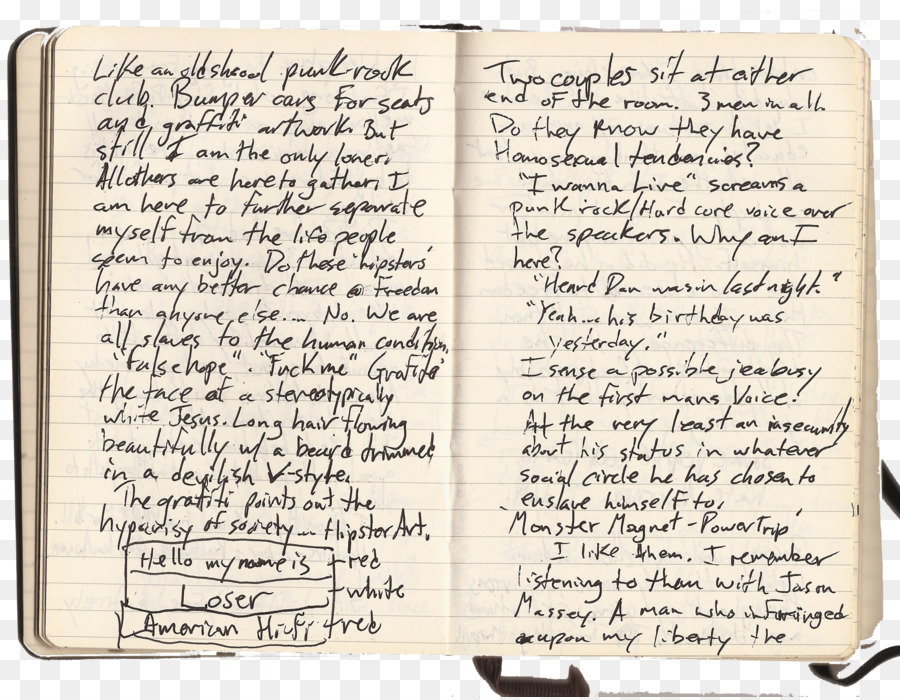 Like an oldshcool punk rock
club. Bumper cars for seats
and graffiti artwork. But
still I am the only loner.
All others are here to gather, I
am here to further separate
myself from the life people
seem to enjoy. Do these 'hipsters'
have any better chance @ Freedom
than anyone else.... No. We are
all slaves to the human condition.
"False hope". "Fuck me" Grafiti
the face of a stereotypically
white Jesus. Long hair flowing
beautifully w/ a beard trimmed
in a devilish V-style.
The grafiti points out the
hypocrisy of society... Hipster Art.
Hello my name is - red
Loser - white
American Hi-fi - red
Two couples sit at either
end of the room. 3 men in all.
Do they know they have
Homosexual tendencies?
"I wanna Live" screams a
punk rock/Hard core voice over
the speakers. Why am I
here?
"Heard Dan was in last night."
"Yeah... his birthday was
yesterday."
I sense a possible jealousy
on the first mans voice.
At the very least an insecurity
about his status in whatever
social circle he has chosen to
enslave himself to.
'Monster Magnet - PowerTrip'
I like them. I remember
listening to them with Jason
Massey. A man who infringed
upon my liberty the